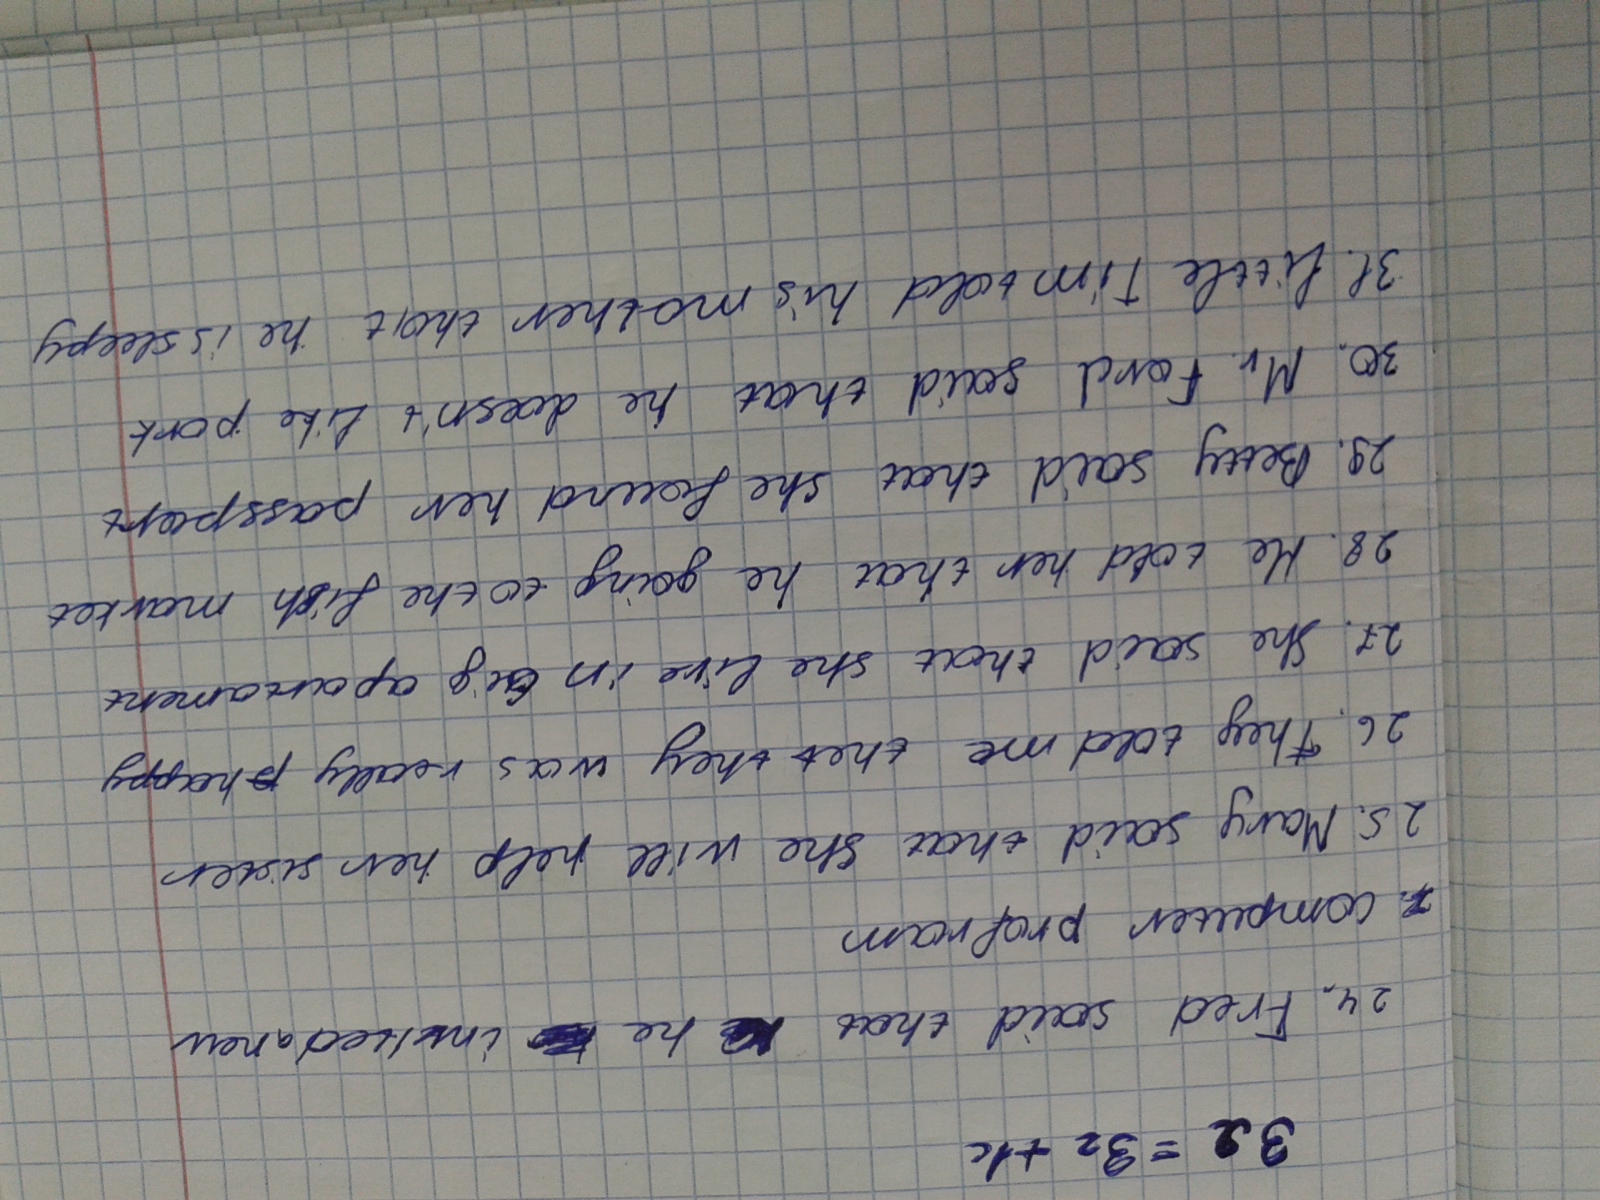 32 = 32 + 1c
24. Fred said that he inslted a new
computer program
25. Mary said that she will help her sister
26. They told me thet they was really happy
27. She said that she live in big apartament
28. He told her that he going to the fish market
29. Betty said that she found her passport
30. Mr. Ford said that he doesn't like pork
31. little Tim told his mother that he is sleepy